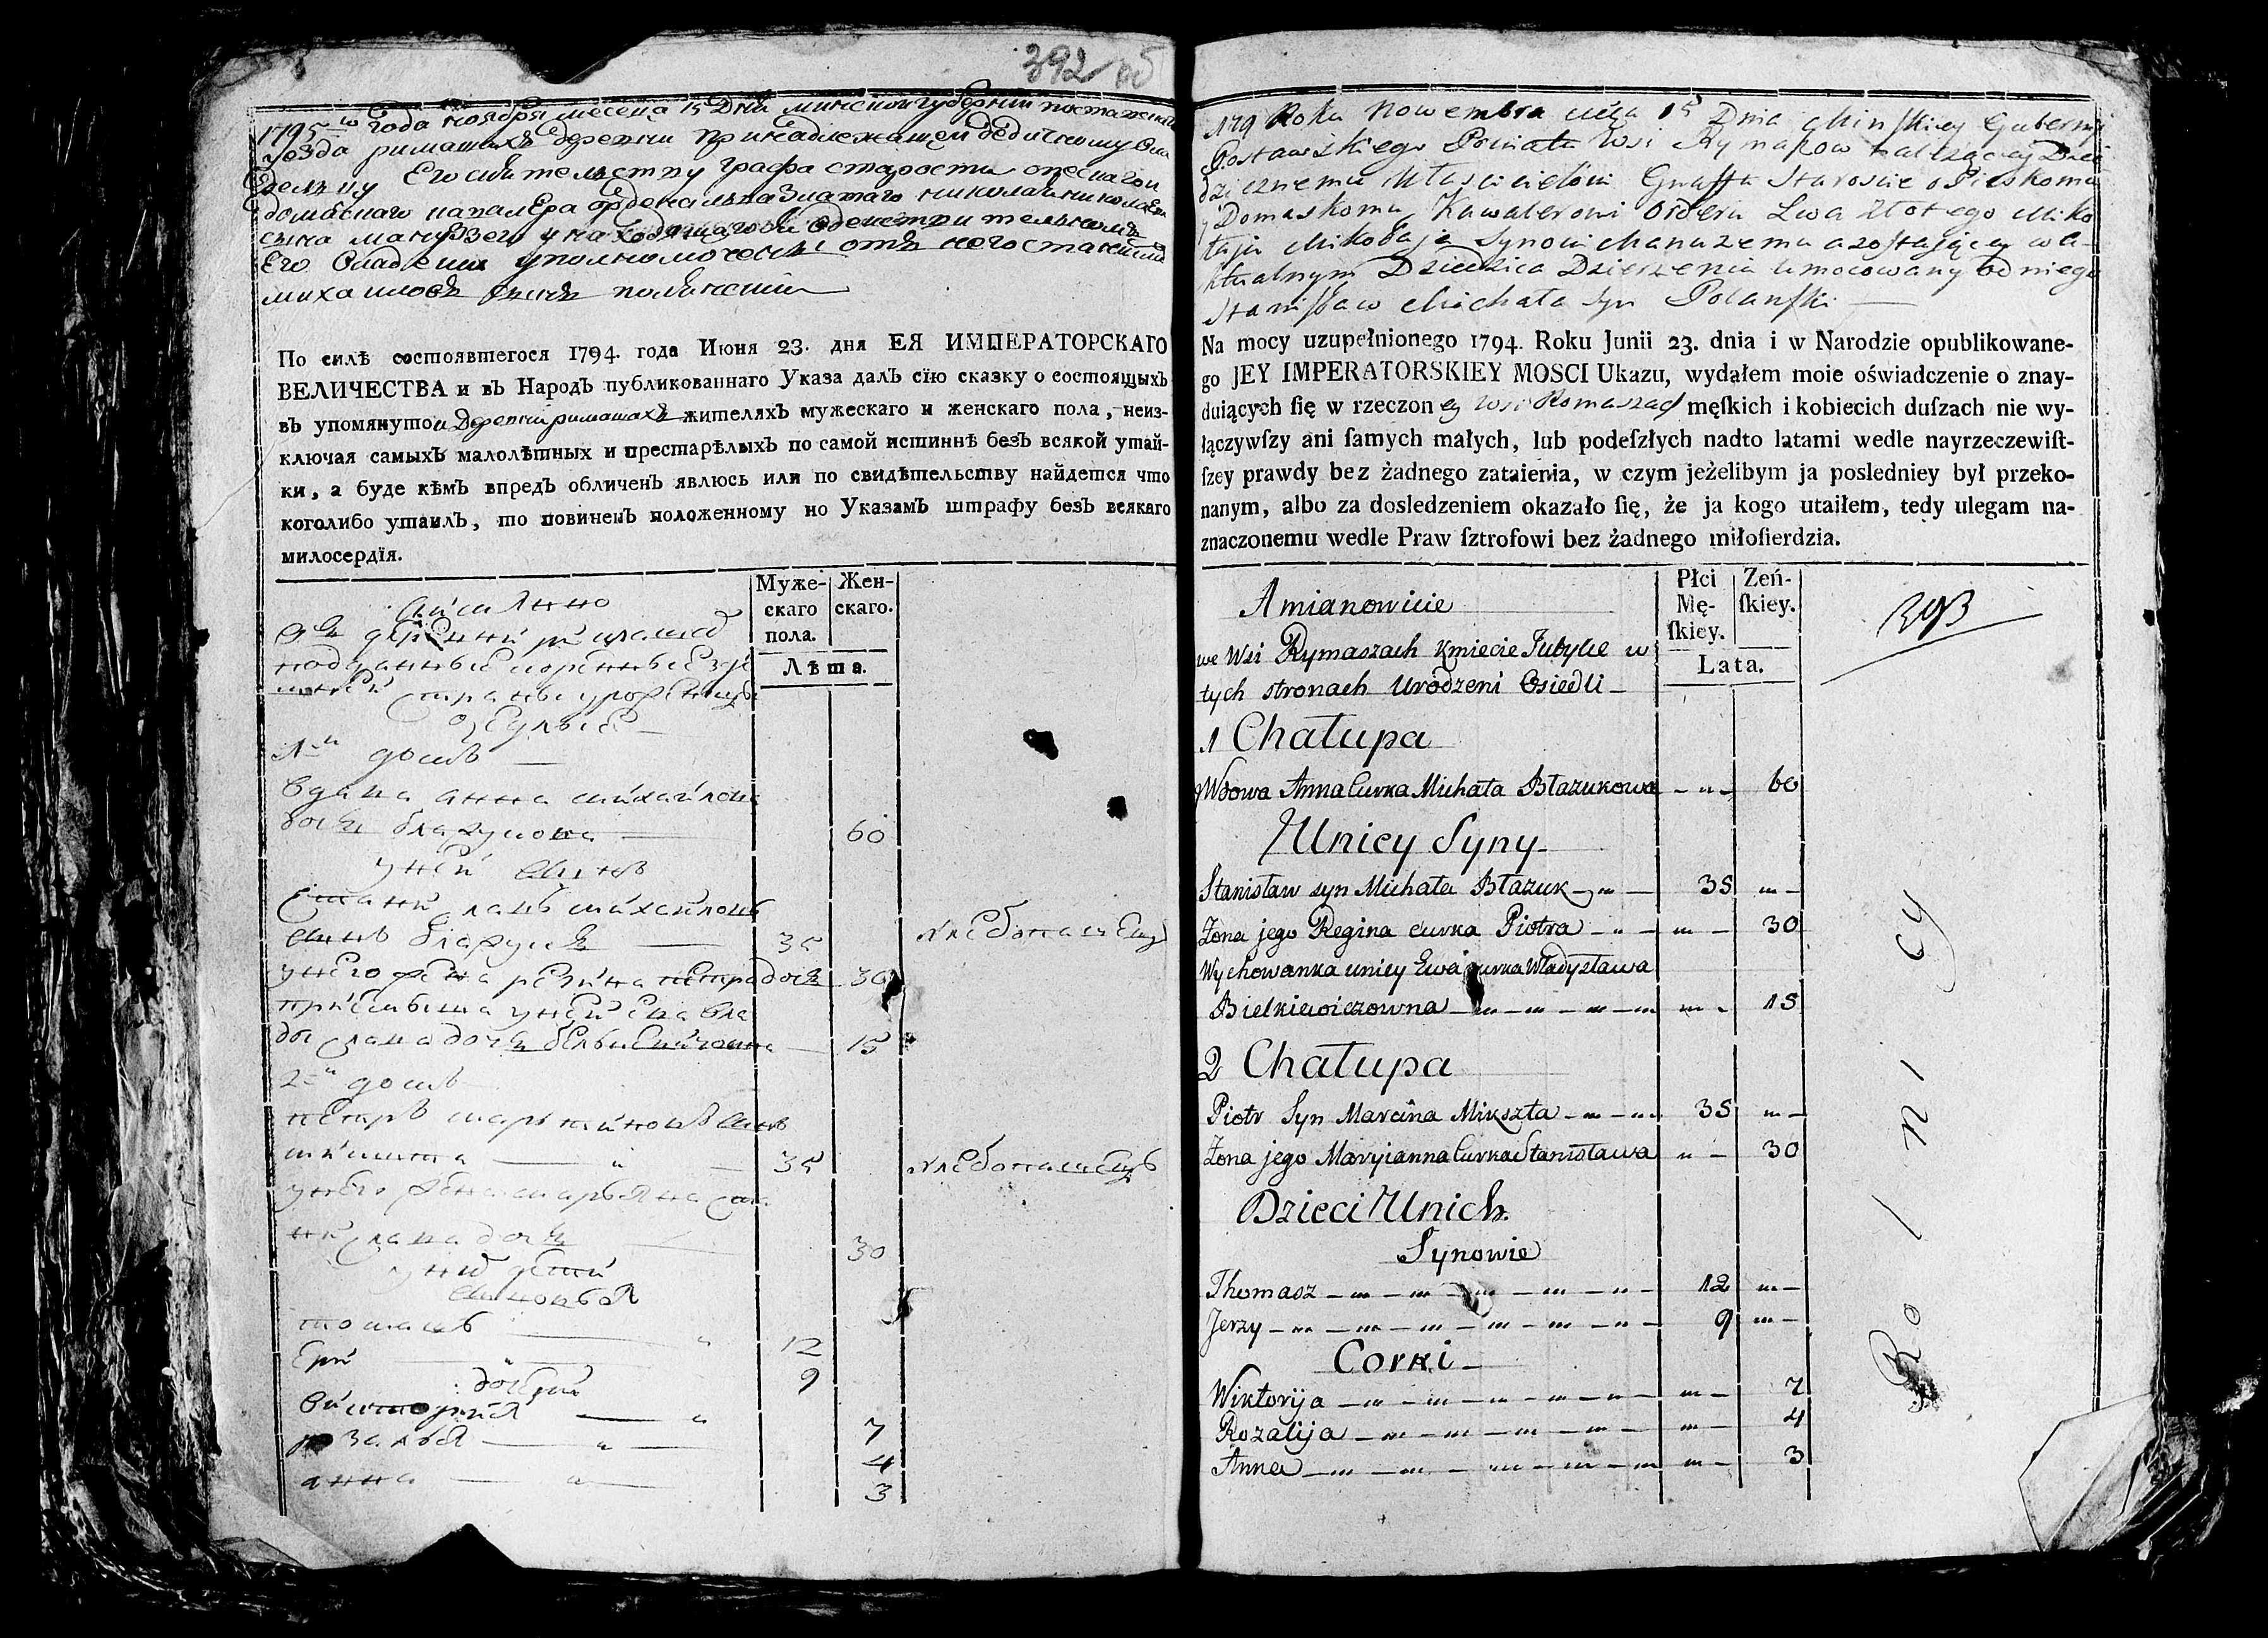 392 об
1795го года ноября месеца 15 Дня минской губернии
уезда римашахъ деревни принадлежащей дедичному
Его сиятелству графа старосты опескагои
домаскаго кавалера ордена льва златаго николая
сына манузего
Его Владении уполномоченъ отъ него станиславъ
михаиловъ сынъ полянский
По силѣ состоявшегося 1794. года Июня 23. дня ЕЯ ИМПЕРАТОРСКАГО
ВЕЛИЧЕСТВА и въ Народъ публикованнаго Указа далъ сїю сказку о состоящыхъ
въ упомянутои Деревни римашахъ жителяхъ мужескаго и женскаго пола, неиз-
ключая самыхъ малолѣтныхъ и престарѣлыхъ по самой истиннѣ безъ всякой утай-
ки, а буде кѣмъ впредъ обличенъ явлюсь или по свидѣтельству найдется что
коголибо утаилъ, то повиненъ положенному по Указамъ штрафу безъ всякаго
милосердїя.
Муже-скаго пола. Жен-скаго.
Лѣта.
Аименно
въ деревни римашахъ
подданные коренные зде
шней страны уроженцы
1й домъ
вдова анна михайлова
дочь блазукова 60
у ней сынъ
Станиславъ михайловъ
сынъ блазукъ 35 хлебопашецъ
у него жена регина петра дочь 30
приемыша у ней ева вла
дыслава дочь белькевичовна 15
2й домъ
петръ мартиновъ сынъ
микшта 35 хлебопашецъ
у него жена марьяна ста
нислава дочь 30
у них дети
сыновья
томашъ 12
ери 9
дочери
викторыя 7
розалья 4
анна 3
179 Roku Nowembra mca 15 Dnia Minskiey Gubernij
Postawskiego Powiatu Wsi Rymaszow należącey Dzie
dzicznemu Własicielowi Graffu Staroscie oPieskomu
y Domaskomu Kawalerowi Orderu Lwa Złotego Miko
łaju Mikołaja Synowi Manuzemu a zostającey w a-
ktualnym Dziedzica Dzierzeniu Umocowany od niego
Stanisław Michała Syn Polanski
Na mocy uzupełnionego 1794. Roku Junii 23. dnia i w Narodzie opublikowane-
go JEY IMPERATORSKIEY MOSCI Ukazu, wydałem moie oświadczenie o znay-
duiących ſię w rzeczoney Wsi Romaszach męſkich i kobiecich duſzach nie wy-
łączywſzy ani ſamych małych, lub podeſzłych nadto latami wedle nayrzeczewiſt-
ſzey prawdy bez żadnego zataienia, w czym jeżelibym ja posledniey był przeko-
nanym, albo za dosledzeniem okazało ſię, że ja kogo utaiłem, tedy ulegam na-
znaczonemu wedle Praw ſztrofowi bez żadnego miłoſierdzia.
Płci Mę-ſkiey. Zeń-ſkiey.
Lata.
393
Amianowicie
we Wsi Rymaszach Kmiecie Tutylie w
tych stronach Urodzeni Osiedli
1 Chałupa
Wdowa Anna Curka Michała Błazukowa 60
U nicy Syny
Stanisław syn Michała Błazuk 35
Zona jego Regina curka Piotra 30
Wychowanka unicy Ewa curka Władysława
Bielkiewiczowna 15
2 Chałupa
Piotr Syn Marcina Mikszta 35
Zona jego Maryianna Curka Stanisława 30
Dzieci Unich.
Synowie
Thomasz 12
Jerzy 9
Corki
Wiktorija 7
Rozalija 4
Anna 3
Rolnicy